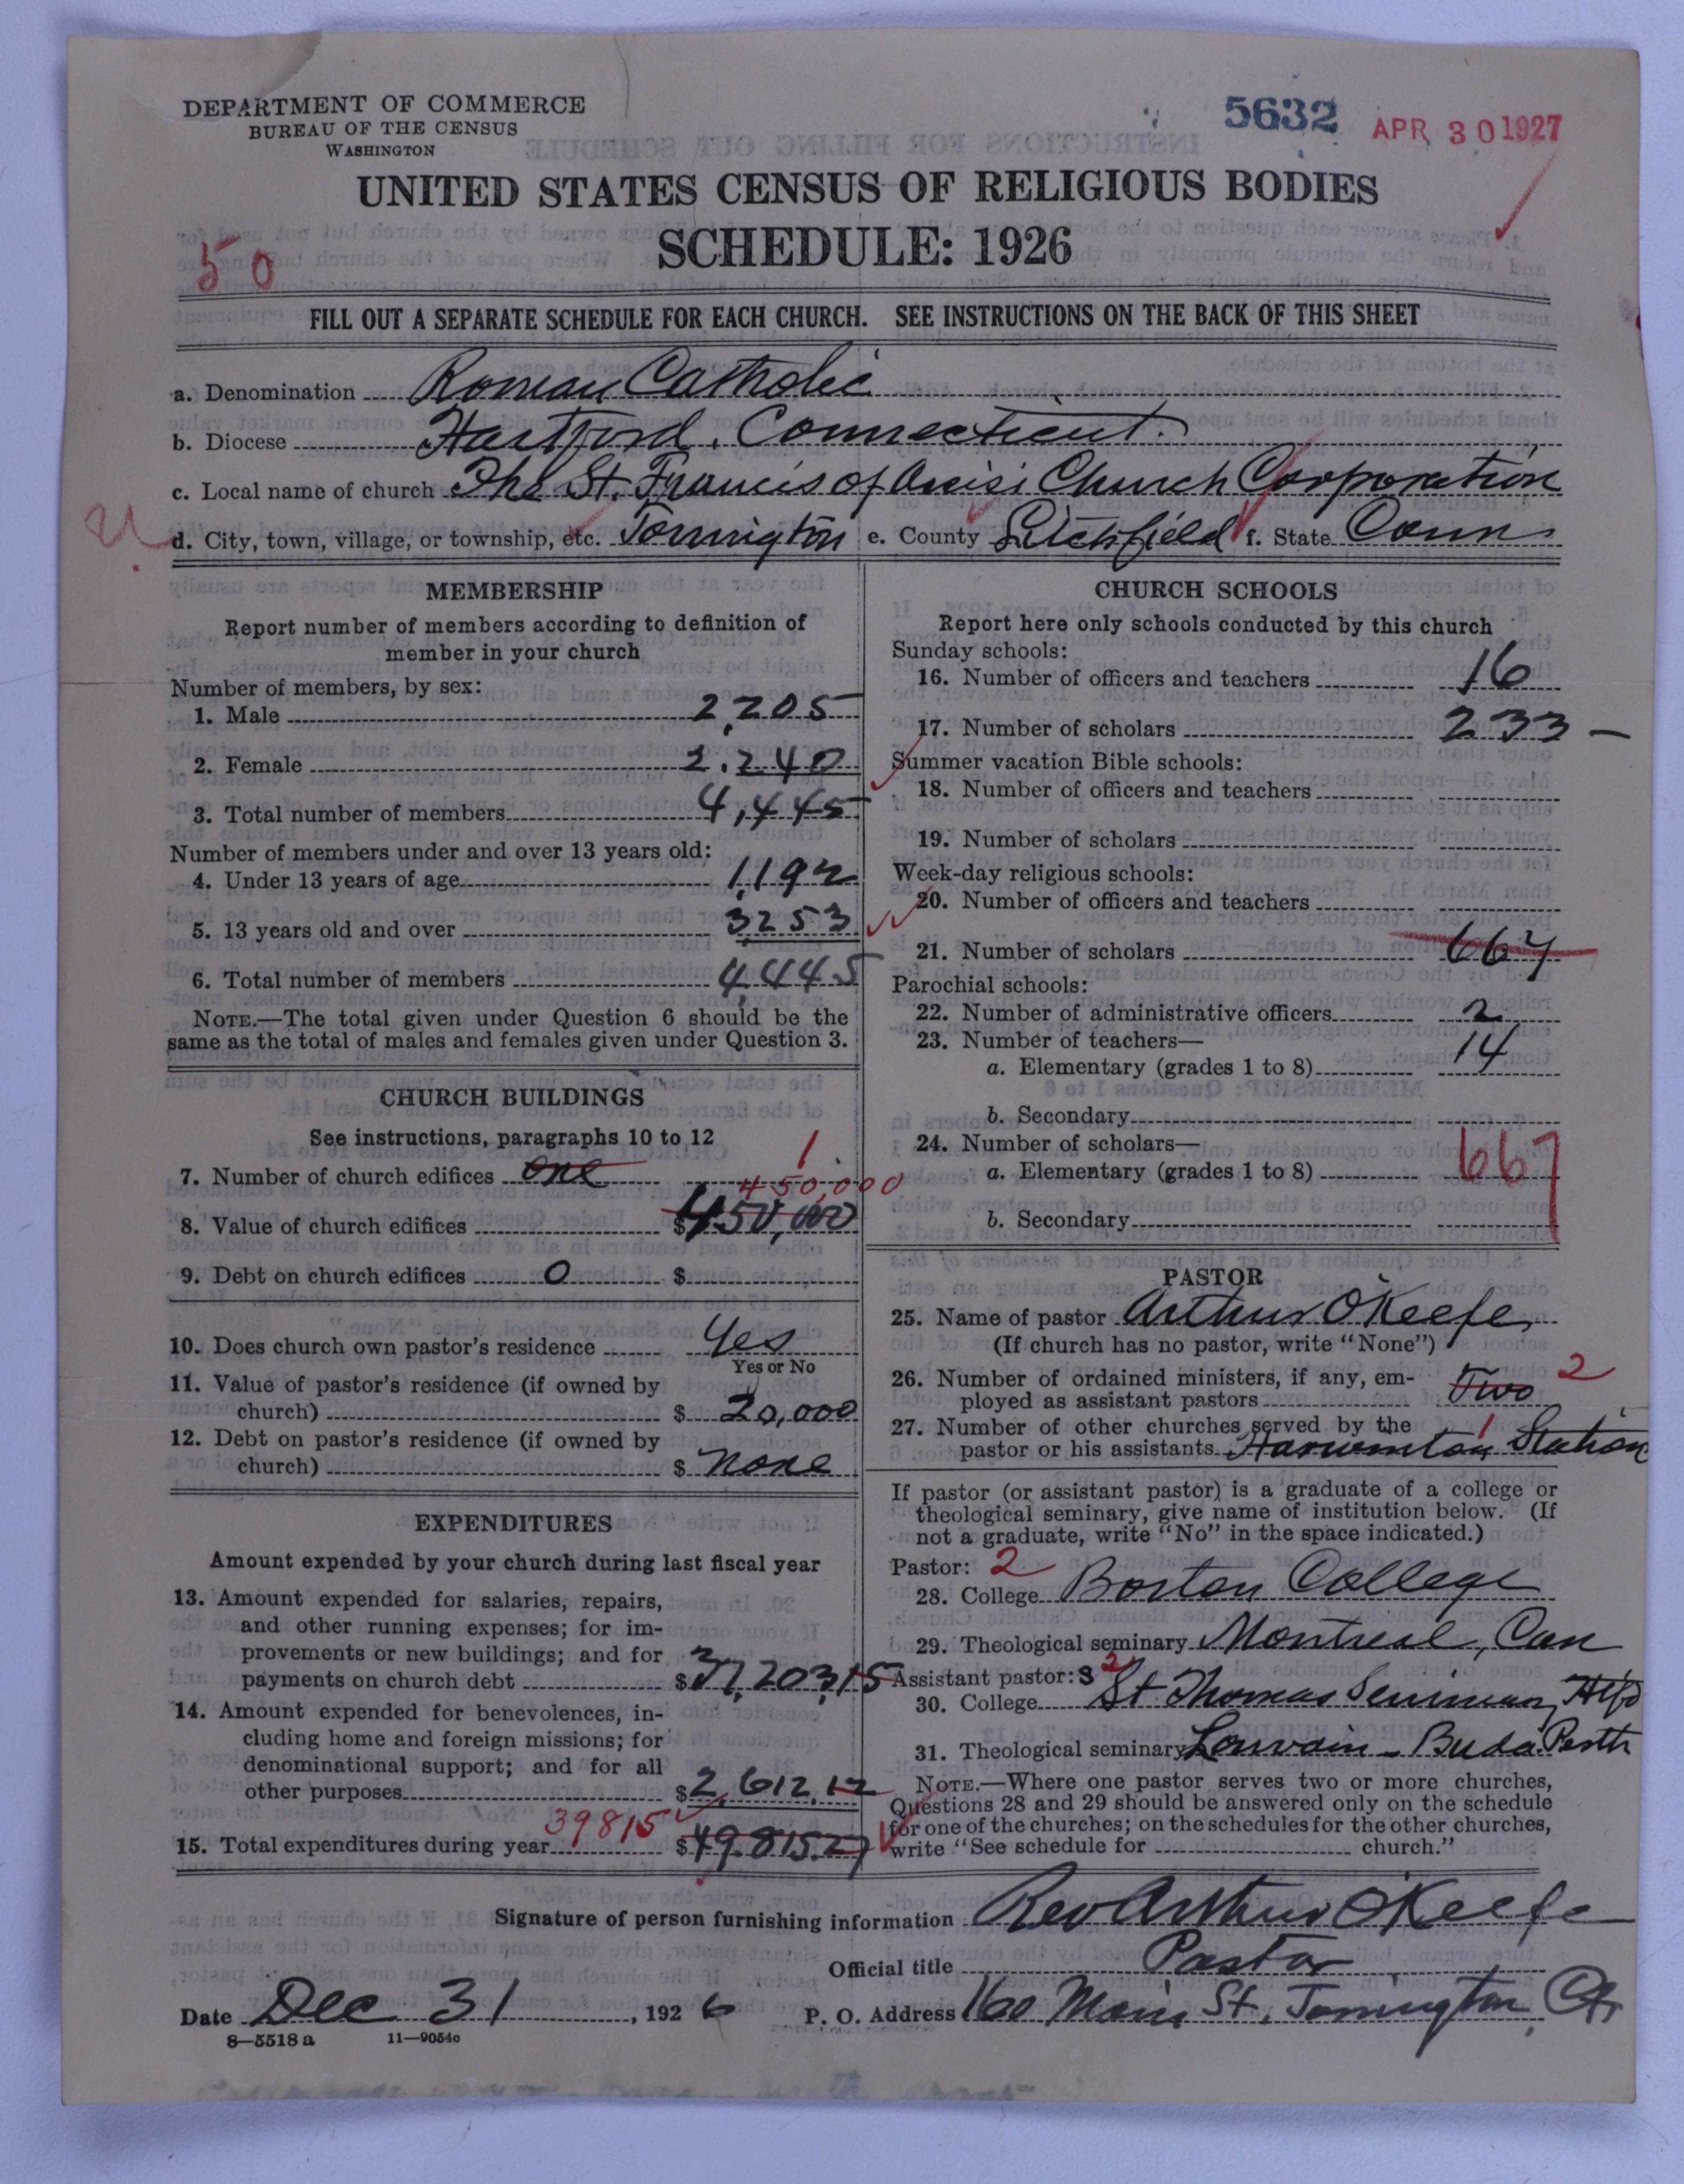 DEPARTMENT OF COMMERCE
BUREAU OF THE CENSUS
WASHINGTON
5632 APR 30 1927
UNITED STATES CENSUS OF RELIGIOUS BODIES
SCHEDULE: 1926
50
FILL OUT A SEPARATE SCHEDULE FOR EACH CHURCH. SEE INSTRUCTIONS ON THE BACK OF THIS SHEET
a. Denomination Roman Catholic
b. Diocese Hartford, Connecticut.
c. Local name of church The St. Francis of Assisi Church Corporation
d. City, town, village, or township, etc. Torrington e. County Litchfield f. State Conn
MEMBERSHIP
Report number of members according to definition of
member in your church
Number of members, by sex:
1. Male 2,205
2. Female 2,240
3. Total number of members 4,445
Number of members under and over 13 years old:
4. Under 13 years of age 1,192
5. 13 years old and over 3253
6. Total number of members 4,445
NOTE.—The total given under Question 6 should be the
same as the total of males and females given under Question 3.
CHURCH BUILDINGS
See instructions, paragraphs 10 to 12
7. Number of church edifices one 1
450,000
8. Value of church edifices $450,000
9. Debt on church edifices 0 $
10. Does church own pastor's residence Yes
Yes or No
11. Value of pastor's residence (if owned by
church) $ 20,000
12. Debt on pastor's residence (if owned by
church) $ none
EXPENDITURES
Amount expended by your church during last fiscal year
13. Amount expended for salaries, repairs,
and other running expenses; for im-
provements or new buildings; and for
payments on church debt $37,203,15
14. Amount expended for benevolences, in-
cluding home and foreign missions; for
denominational support; and for all
other purposes $2,612.12
39815
15. Total expenditures during year $49.815.27
CHURCH SCHOOLS
Report here only schools conducted by this church
Sunday schools:
16. Number of officers and teachers 16
17. Number of scholars 233 –
Summer vacation Bible schools:
18. Number of officers and teachers
19. Number of scholars
Week-day religious schools:
20. Number of officers and teachers
21. Number of scholars 667
Parochial schools:
22. Number of administrative officers 2
23. Number of teachers—
a. Elementary (grades 1 to 8) 14
b. Secondary
24. Number of scholars—
a. Elementary (grades 1 to 8) 667
b. Secondary
PASTOR
25. Name of pastor Arthur O'Keefe
(If church has no pastor, write "None")
26. Number of ordained ministers, if any, em-
ployed as assistant pastors Two 2
27. Number of other churches served by the
pastor or his assistants Harwinton Station 1
If pastor (or assistant pastor) is a graduate of a college or
theological seminary, give name of institution below. (If
not a graduate, write "No" in the space indicated.)
Pastor: 2
28. College Boston College
29. Theological seminary Montreal, Can
Assistant pastor: s 2
30. College St Thomas Seminary Htfd
31. Theological seminary Louvain – Buda Pesth
NOTE.—Where one pastor serves two or more churches,
Questions 28 and 29 should be answered only on the schedule
for one of the churches; on the schedules for the other churches,
write "See schedule for church."
Signature of person furnishing information Rev Arthur O'Keefe
Official title Pastor
Date Dec 31, 1926 P. O. Address 160 Main St. Torrington, Ct.
8—5518 a 11—9054c